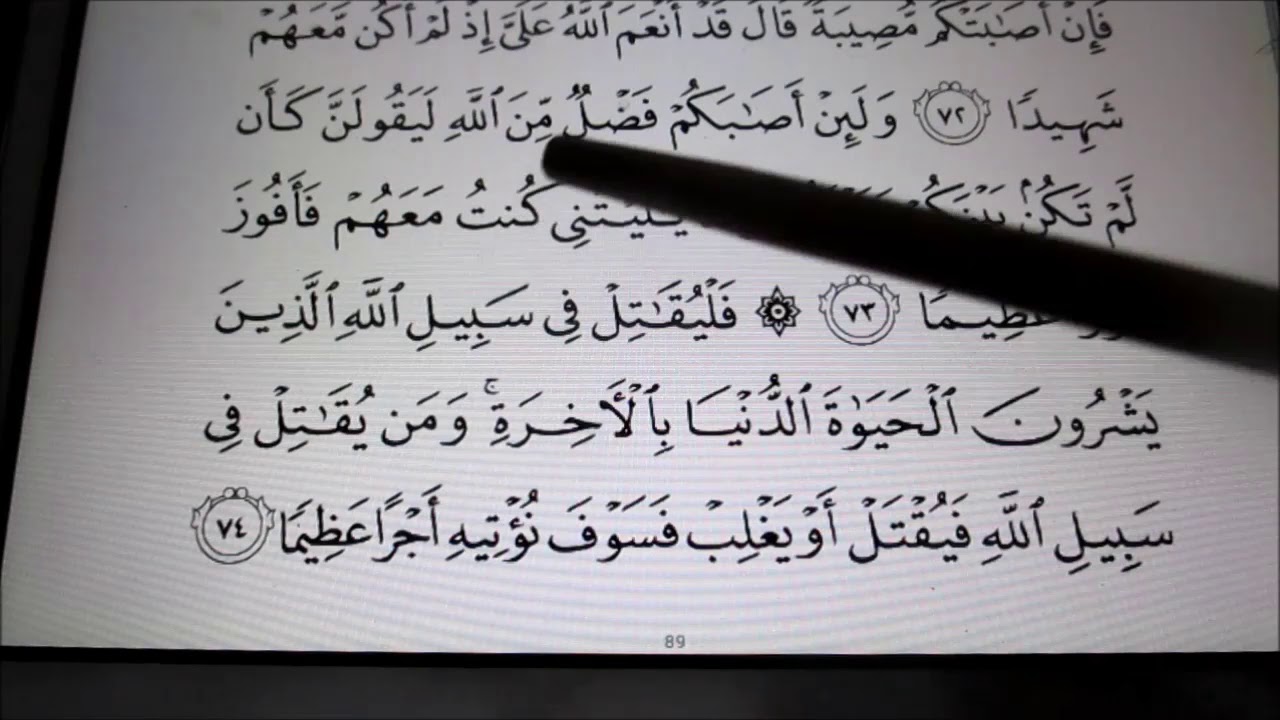 فَإِنْ أَصَٰبَتْكُم مُّصِيبَةٌ قَالَ قَدْ أَنْعَمَ ٱللَّهُ عَلَىَّ إِذْ لَمْ أَكُن مَّعَهُمْ
شَهِيدًا ٧٢ وَلَئِنْ أَصَٰبَكُمْ فَضْلٌ مِّنَ ٱللَّهِ لَيَقُولَنَّ كَأَن
لَّمْ تَكُنۢ يَٰلَيْتَنِى كُنتُ مَعَهُمْ فَأَفُوزَ
عَظِيمًا ٧٣ ۞ فَلْيُقَٰتِلْ فِى سَبِيلِ ٱللَّهِ ٱلَّذِينَ
يَشْرُونَ ٱلْحَيَوٰةَ ٱلدُّنْيَا بِٱلْأَخِرَةِ ۚ وَمَن يُقَٰتِلْ فِى
سَبِيلِ ٱللَّهِ فَيُقْتَلْ أَوْ يَغْلِبْ فَسَوْفَ نُؤْتِيهِ أَجْرًا عَظِيمًا ٧٤
89